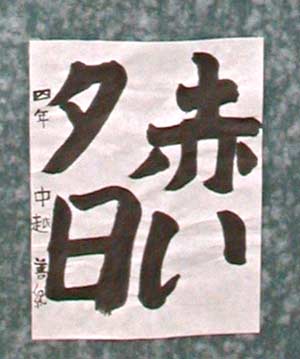 赤い
夕日
四年 中越 善